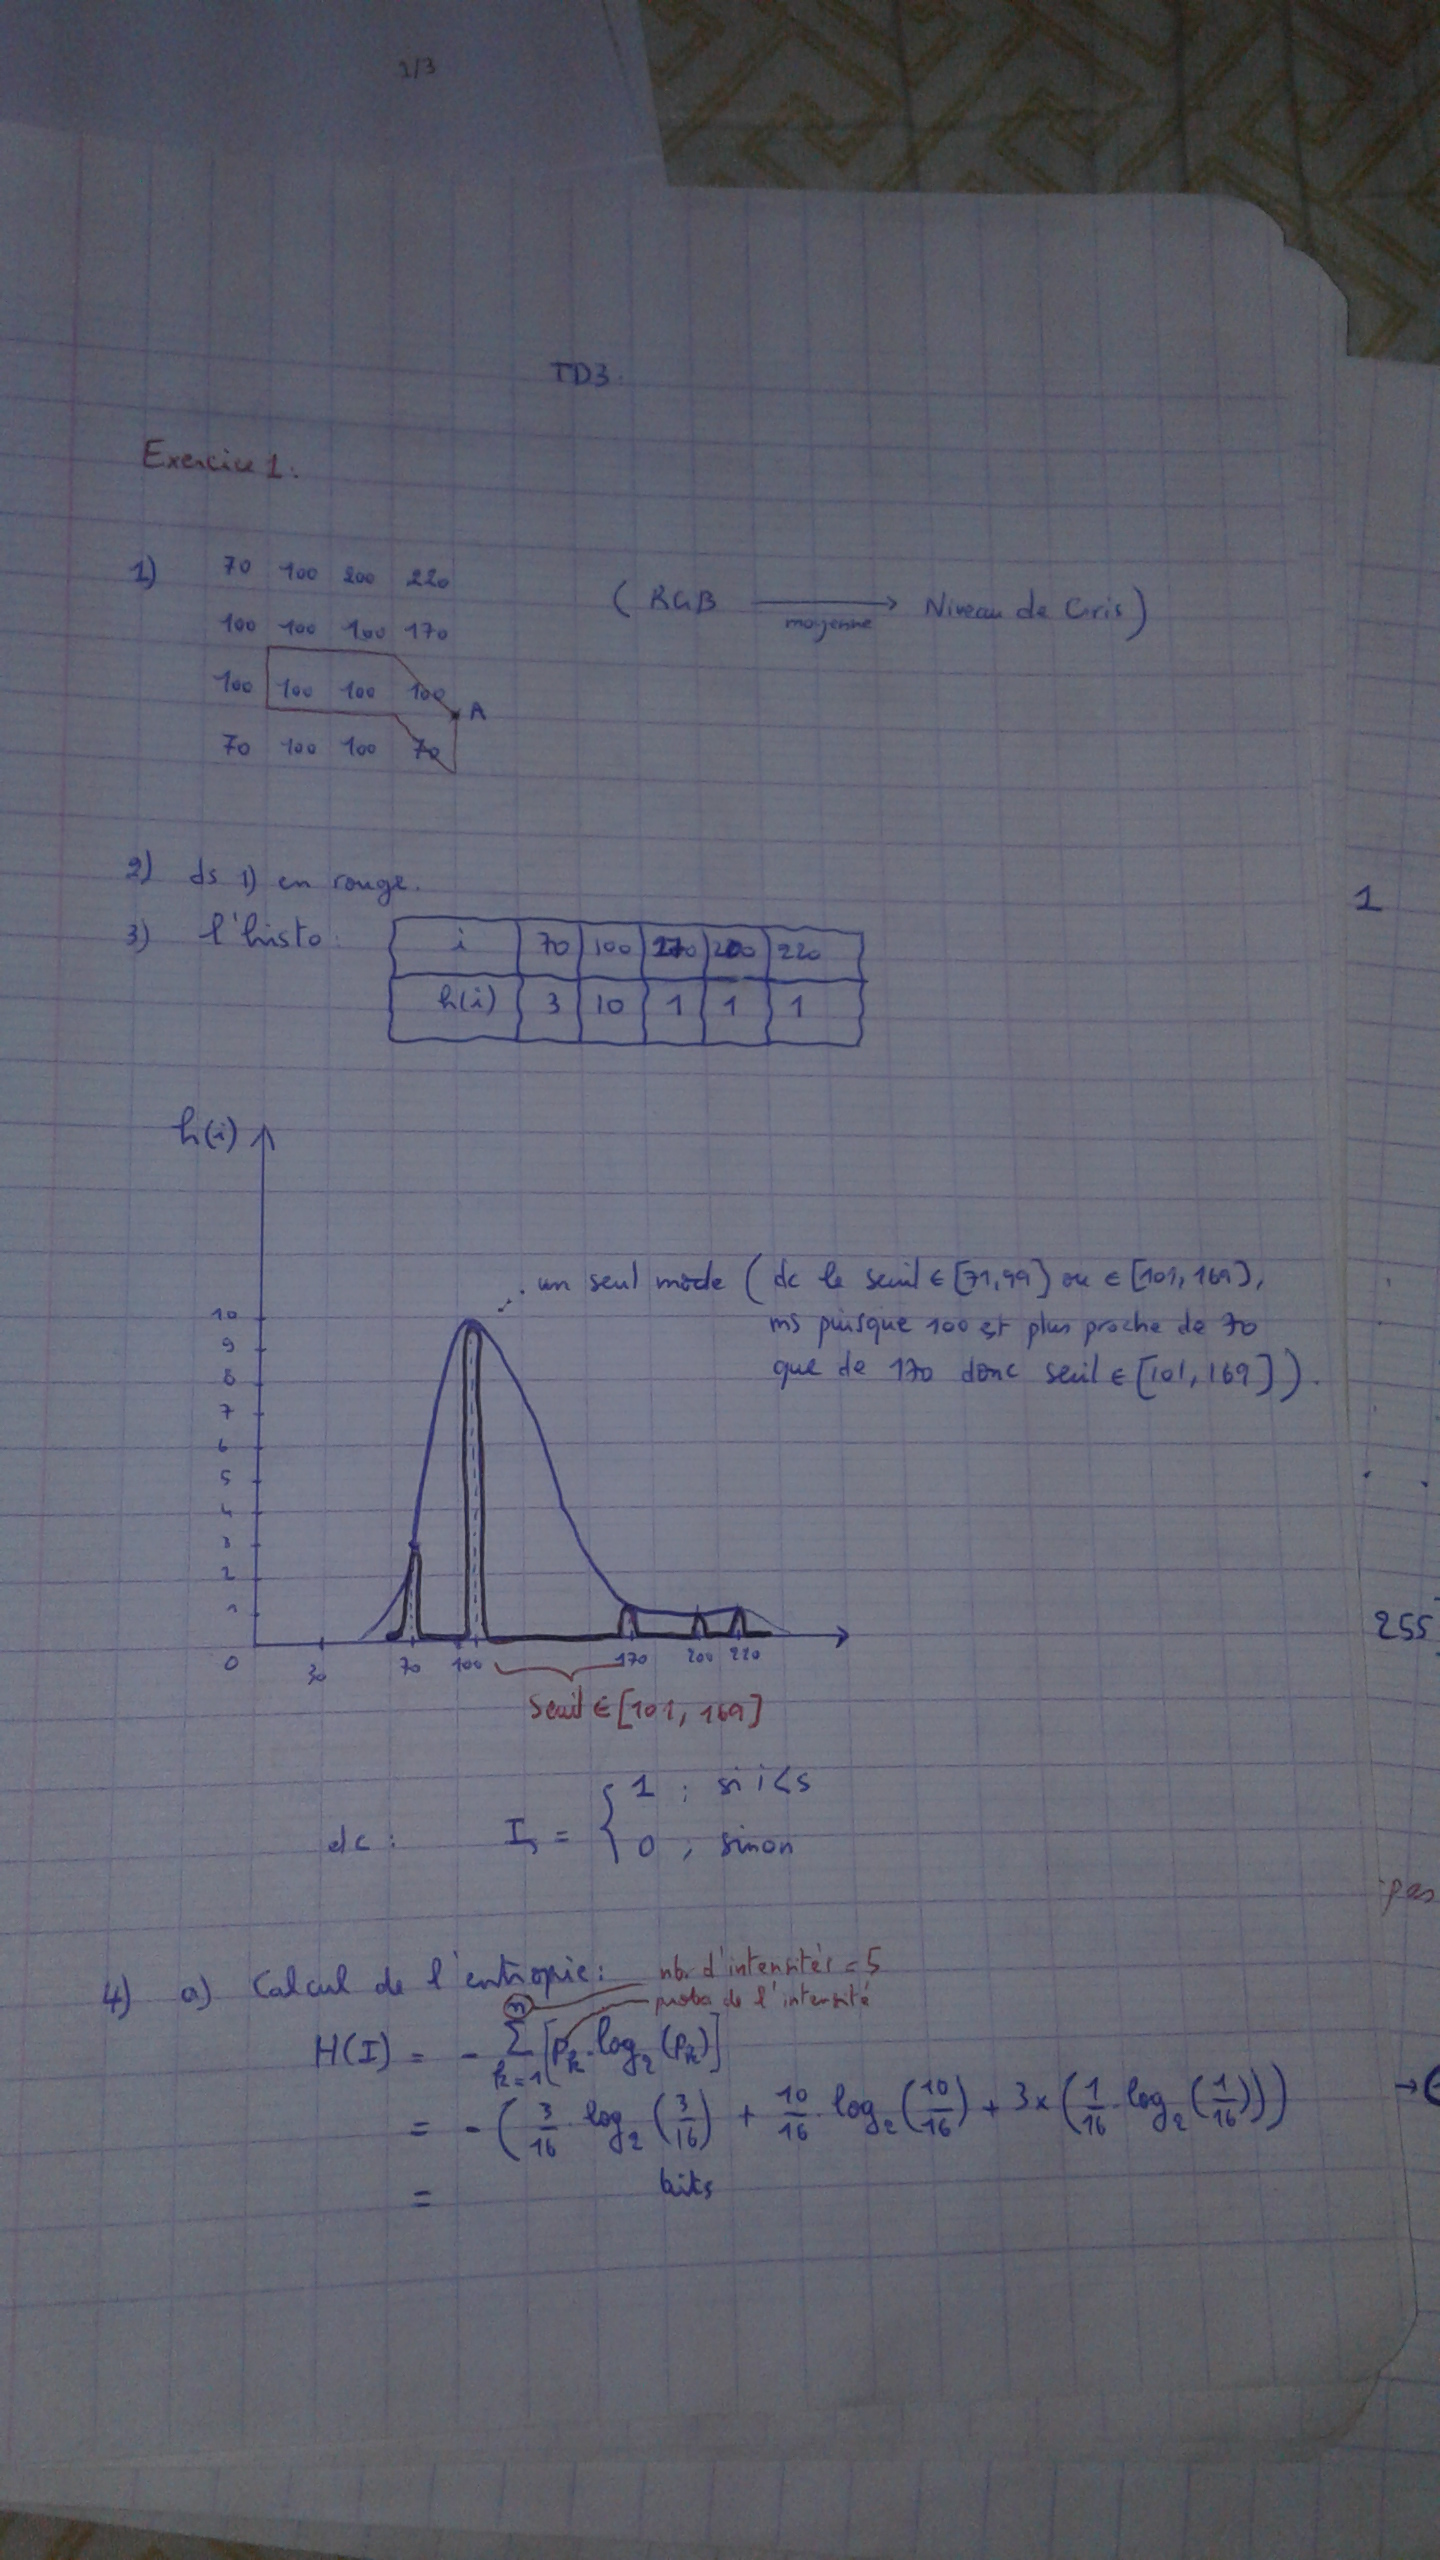 1/3
TD3.
Exercice 1:
1) 70 100 200 220
100 100 100 170
100 100 100 100 A
70 100 100 70
( RGB moyenne → Niveau de Gris)
2) ds 1) en rouge.
3) l'histo:
i 70 100 170 200 220
h(i) 3 10 1 1 1
h(i)
un seul mode ( dc le seuil ∈ [71,99] ou ∈ [101,169],
ms puisque 100 est plus proche de 70
que de 170 donc seuil ∈ [101, 169] ).
10
9
8
7
6
5
4
3
2
1
0 30 70 100 170 200 220
Seuil ∈ [101, 169]
dc : Is = { 1 ; si i < s
0 ; sinon
4) a) Calcul de l'entropie: nbr d'intensités = 5
proba de l'intensité
H(I) = - Σ k=1 n [Pk . log2 (Pk)]
= - ( 3/16 . log2 (3/16) + 10/16 . log2 (10/16) + 3x (1/16 . log2 (1/16)))
= bits
1
255
pas
→